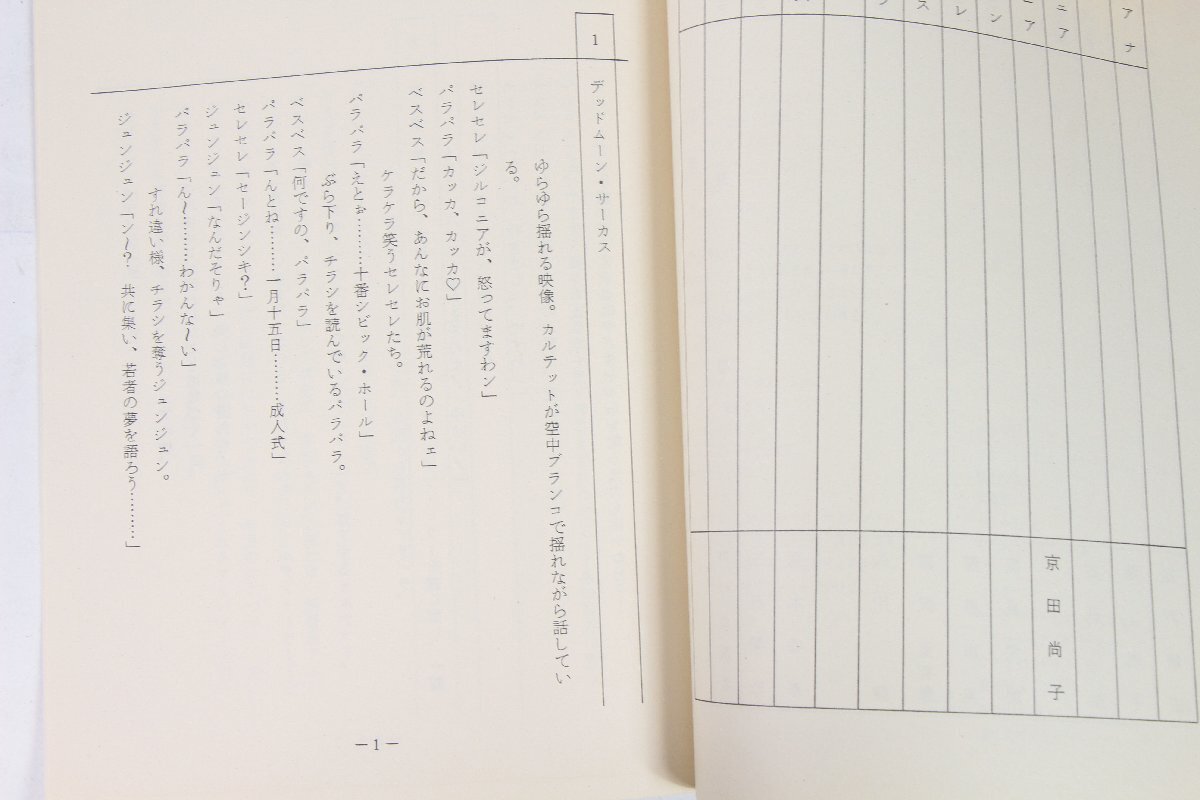 京田尚子
1
デッドムーン・サーカス
ゆらゆら揺れる映像。カルテットが空中ブランコで揺れながら話してい
る。
セレセレ「ジルコニアが、怒ってますわン」
パラパラ「カッカ、カッカ♡」
ベスベス「だから、あんなにお肌が荒れるのよねェ」
ケラケラ笑うセレセレたち。
パラパラ「えとぉ………十番シビック・ホール」
ぶら下り、チラシを読んでいるパラパラ。
ベスベス「何ですの、パラパラ」
パラパラ「んとね………一月十五日………成人式」
セレセレ「セージンシキ？」
ジュンジュン「なんだそりゃ」
パラパラ「ん〜………わかんな〜い」
すれ違い様、チラシを奪うジュンジュン。
ジュンジュン「ン〜？ 共に集い、若者の夢を語ろう………」
－1－